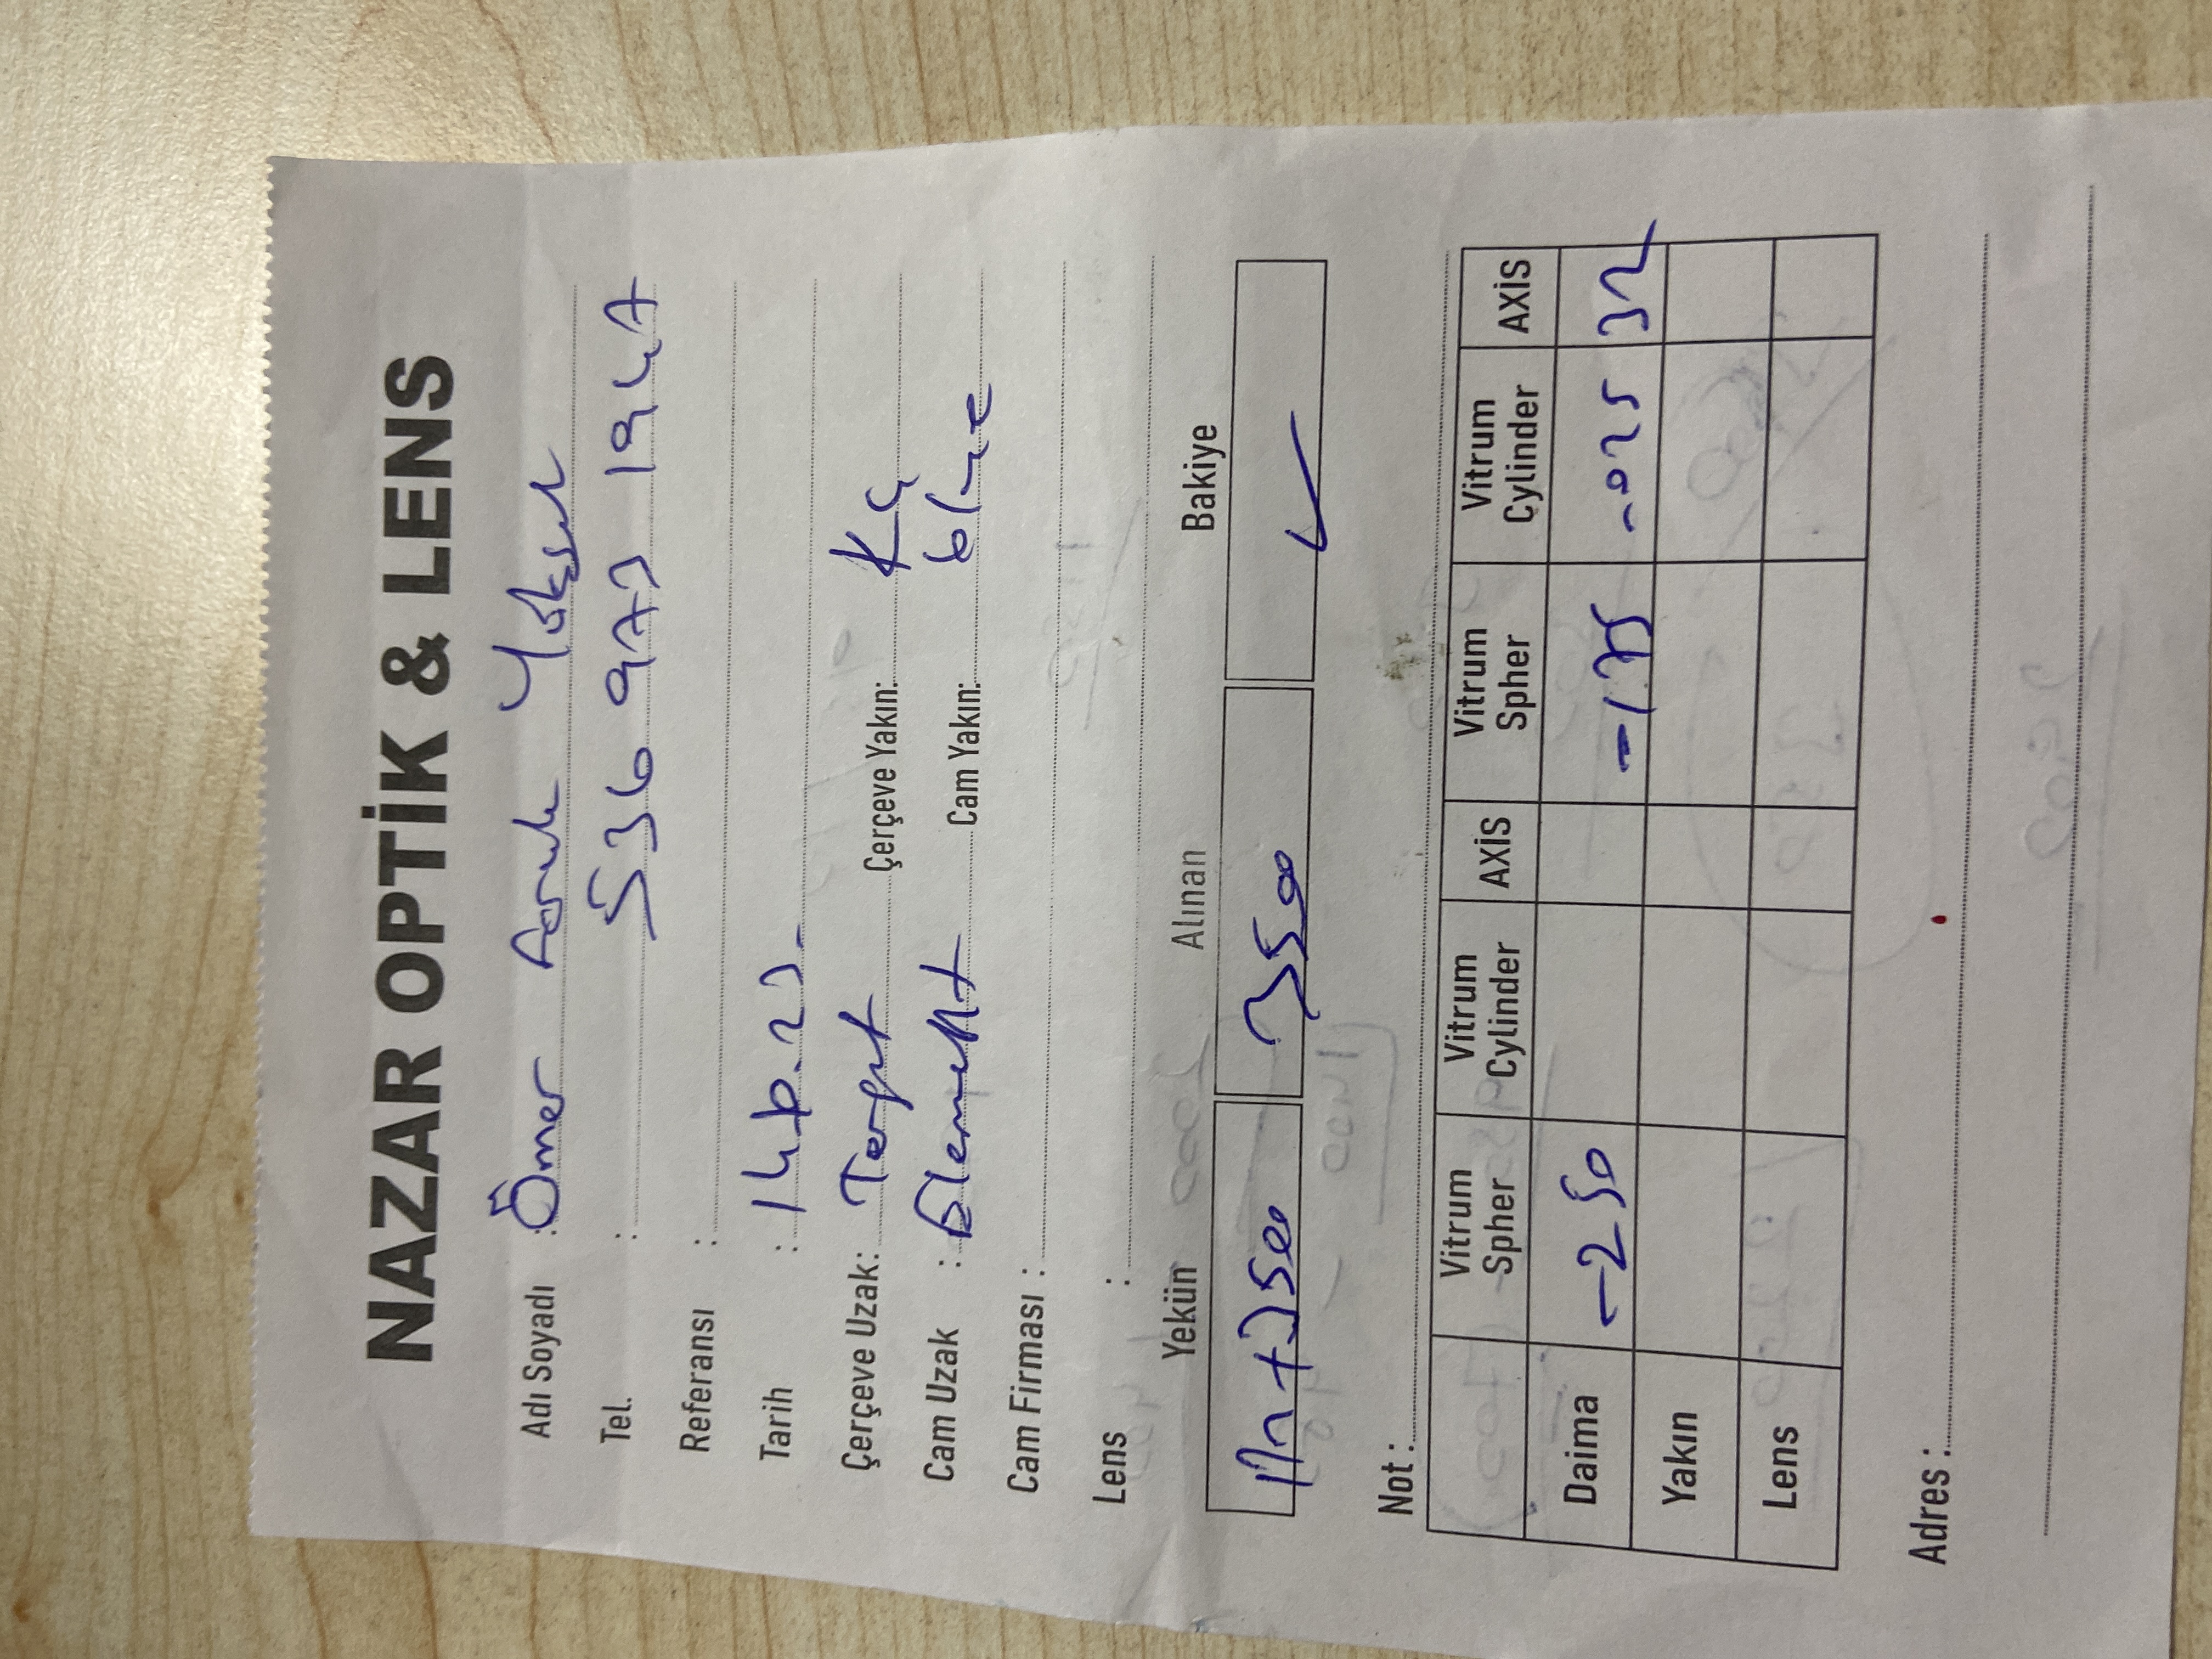 NAZAR OPTİK & LENS
Adı Soyadı : Ömer Faruk Yüksel
Tel. : 536 973 1947
Referansı :
Tarih : 14.10.23.
Çerçeve Uzak: Target Çerçeve Yakın: Kç
Cam Uzak : Element Cam Yakın: blue
Cam Firması :
Lens :
Yekün Alınan Bakiye
+3500 3500 ✓
Not :
Vitrum Spher Vitrum Cylinder AXİS Vitrum Spher Vitrum Cylinder AXİS
Daima -2 50 -1.75 -025 32
Yakın
Lens
Adres :